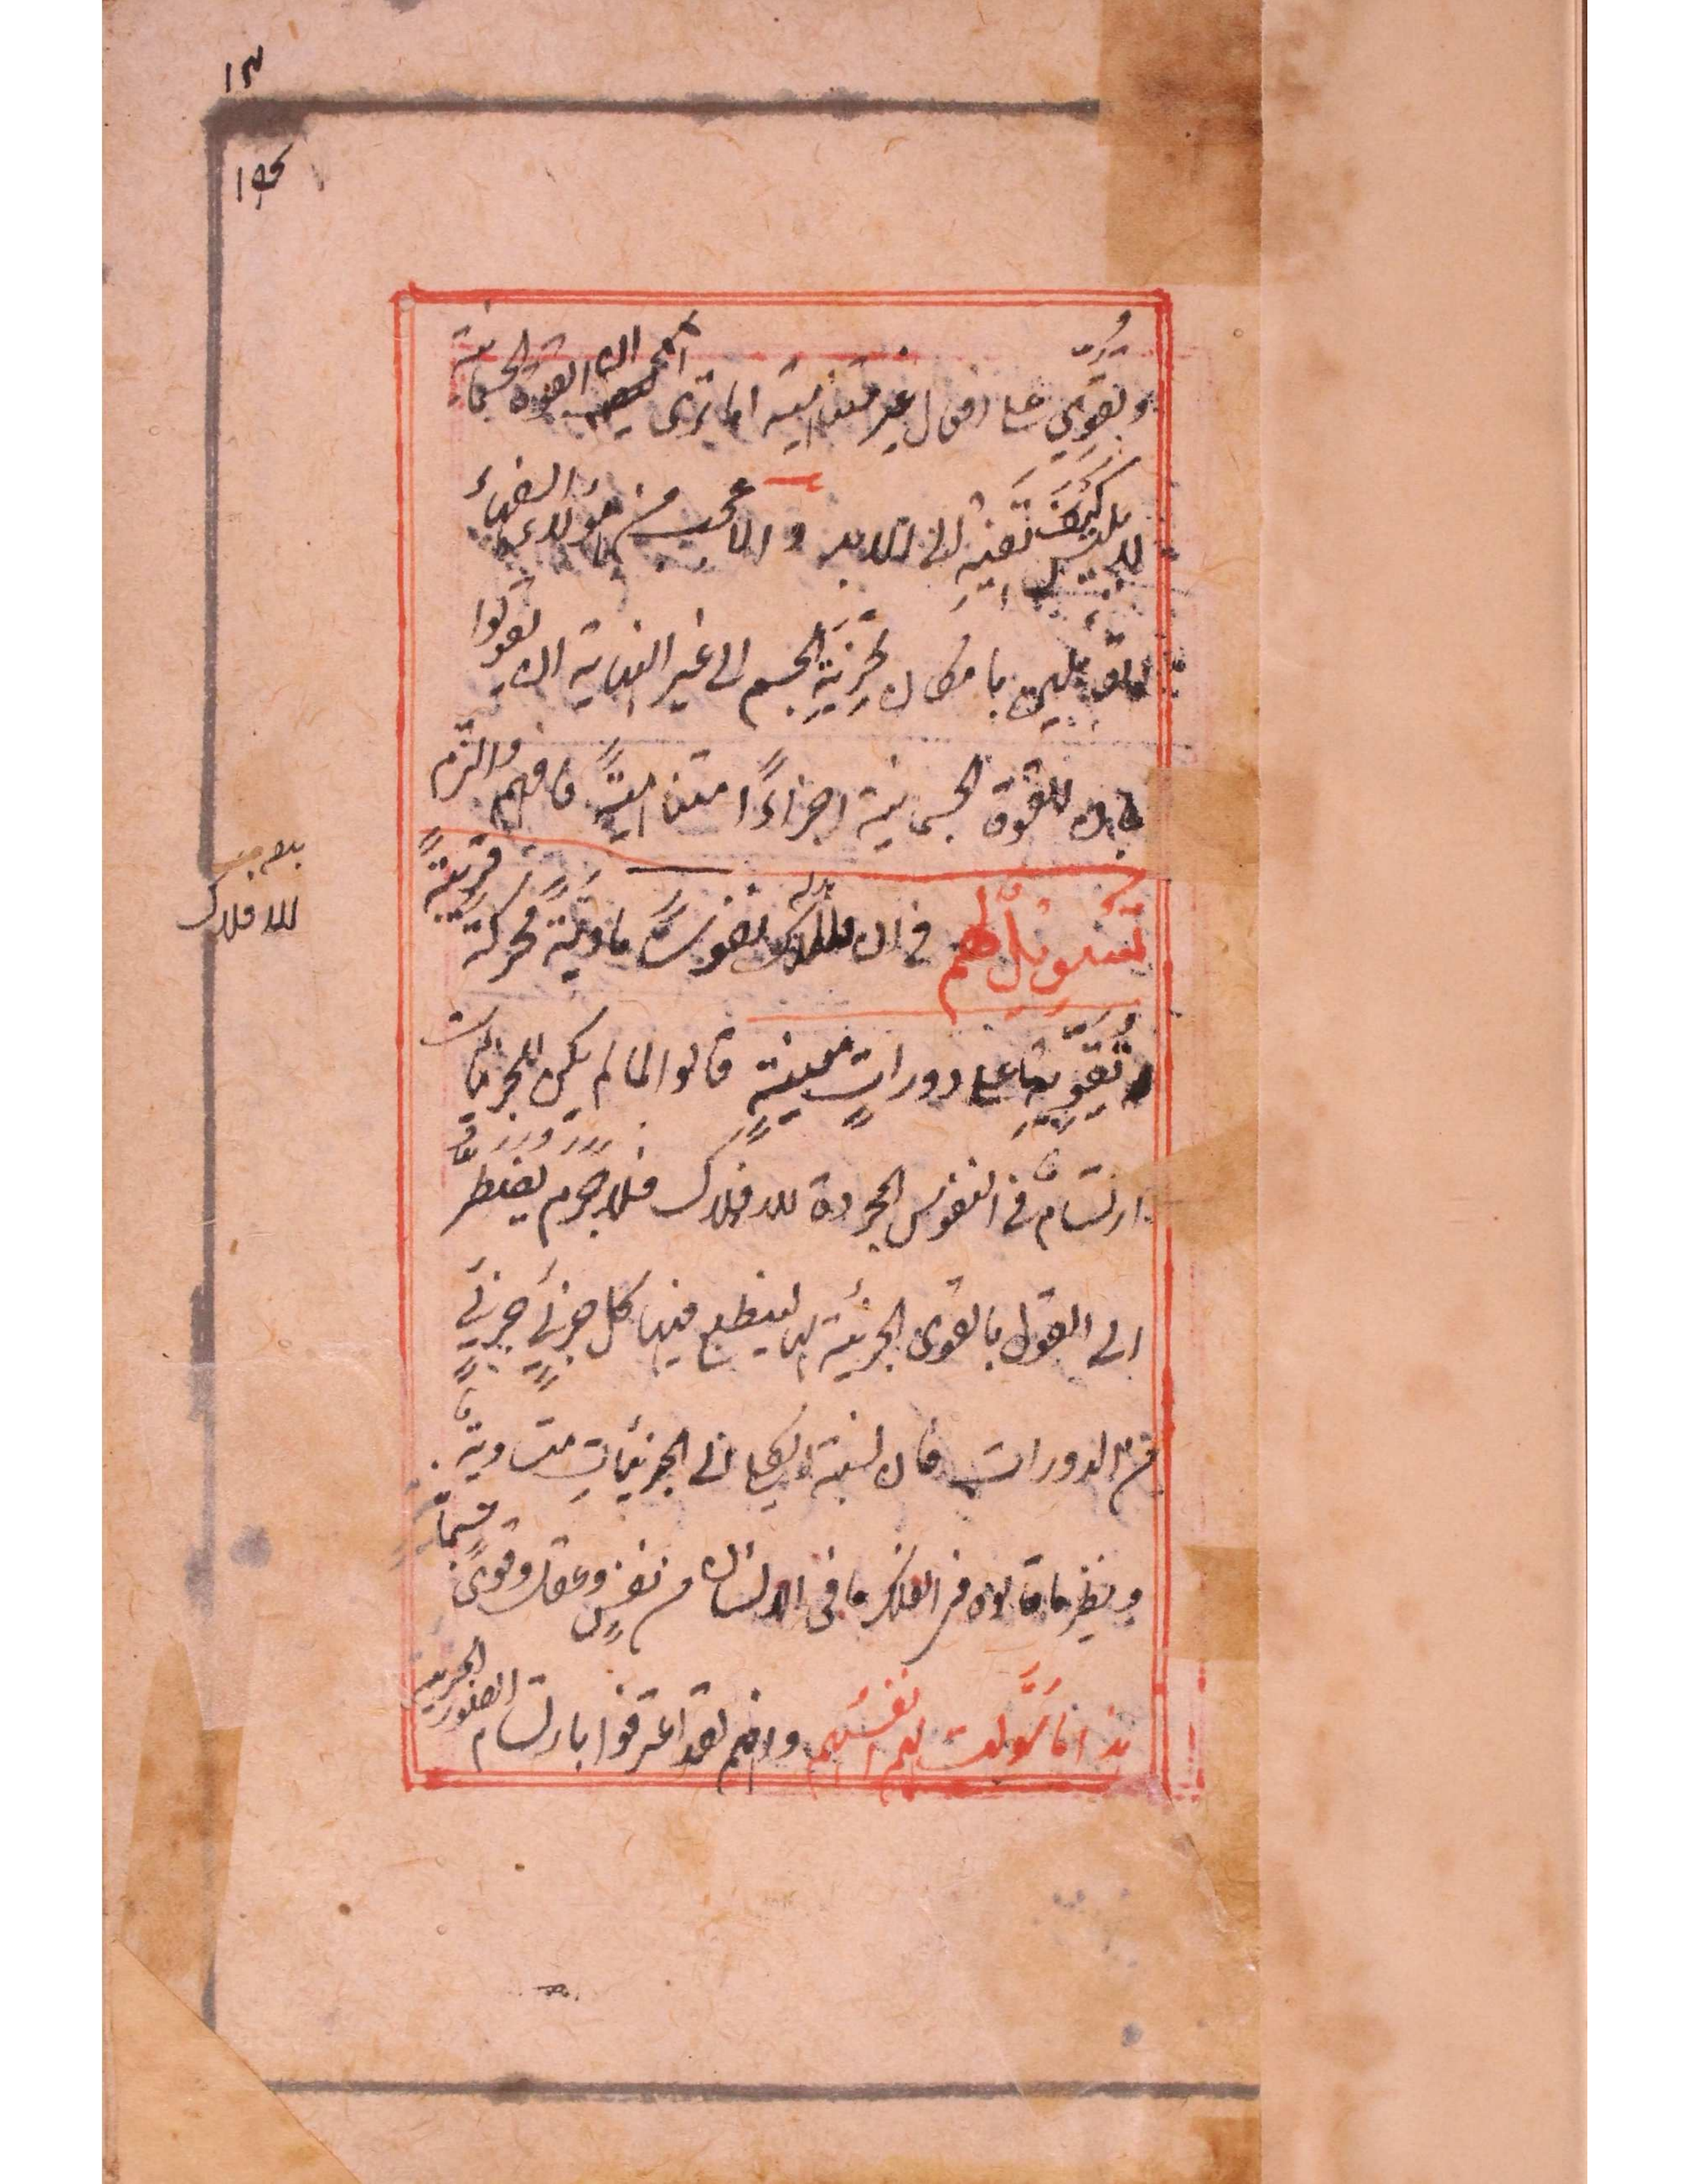 وتقوي على افعال غير متناهية اما ترى ان القوة الجسمانية
كيف تفنى الى الابد والعجب من هؤلاء السفهاء
القائلين بامكان تجزية الجسم الى غير النهاية ان يقولوا
بان للقوة الجسمانية اجزاءً متناهيةً فافهم والتزم
تسويلٌ لهم في ان للافلاك نفوسًا ماديةً محركة قريبةً
وتقوية على دوراتٍ معينةٍ قالوا لما لم يكن للجزئيات
ارتسامٌ في النفوس المجردة للافلاك فلا جرم يضطر
الى القول بالقوى الجزئية لينطبع فيها كل جزئي جزئي
من الدورات فان نسبة الكلي الى الجزئيات متساوية
ونظير ما قالوه في الفلك ما في الانسان من نفسٍ وعقل وقوىً
هذا ما سولت لهم انفسهم وانهم لقد اعترفوا بارتسام الصور الجزئية
للافلاك